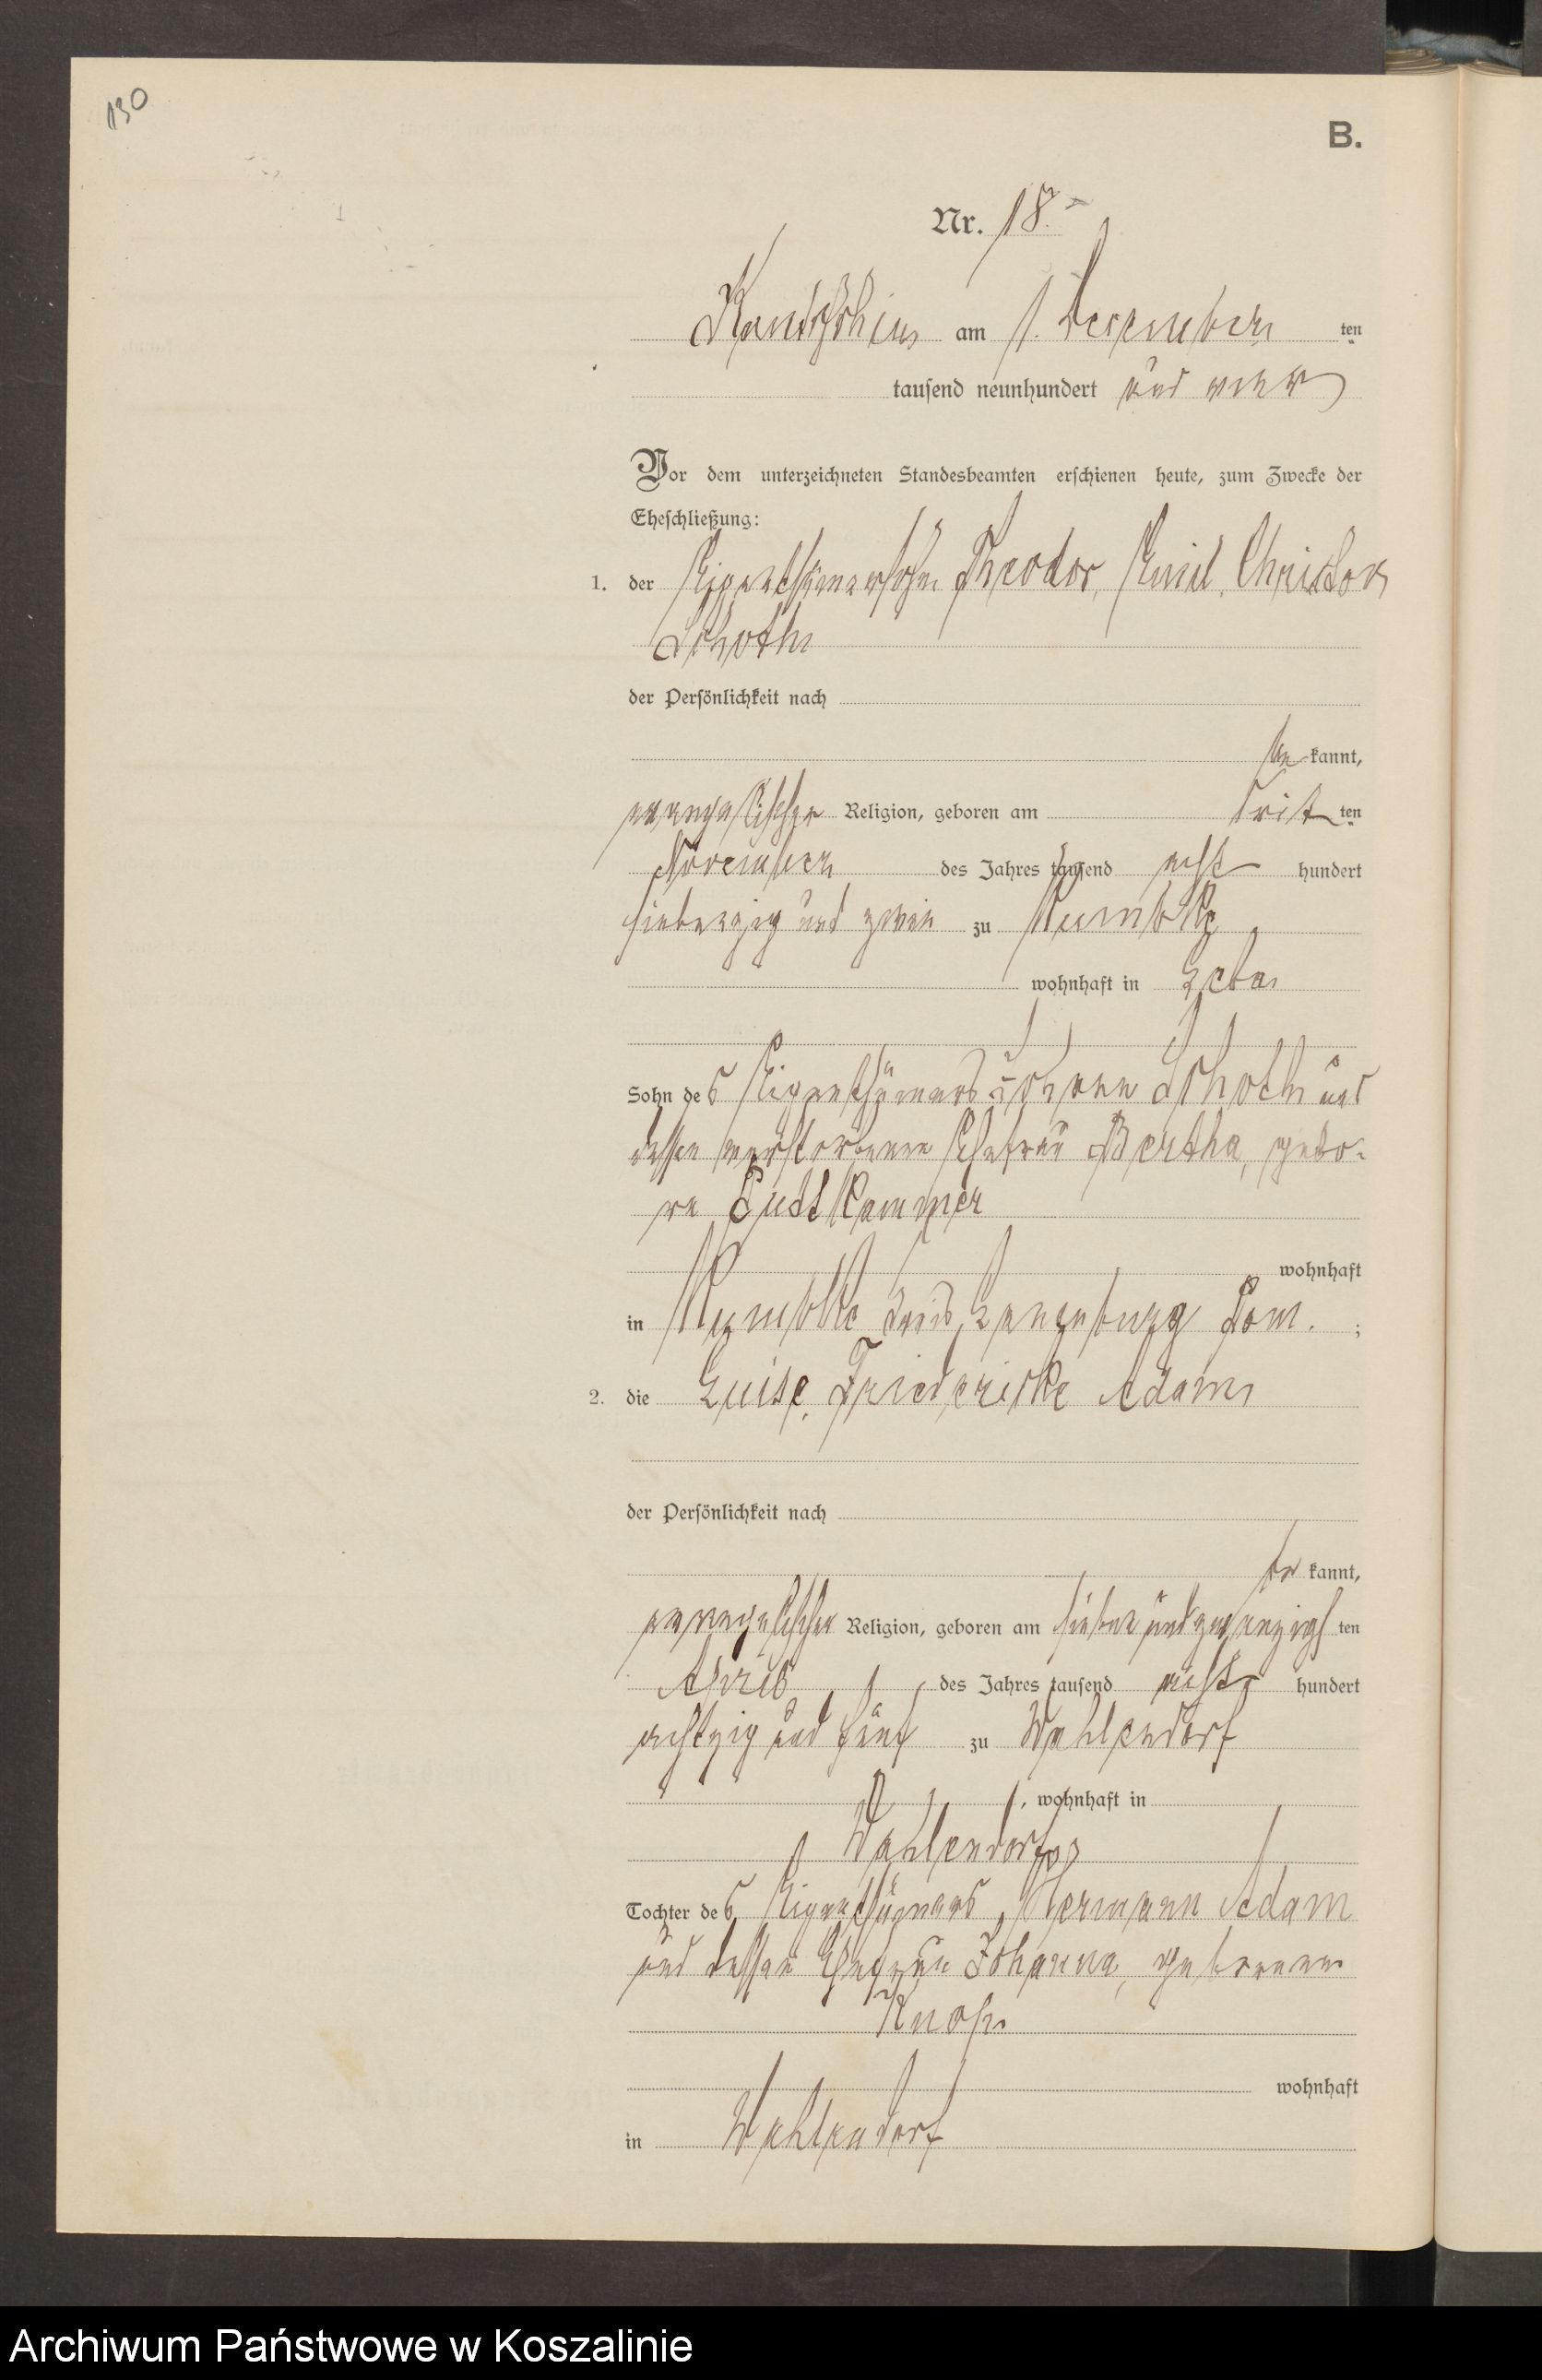 130
B.
Nr. 18.
am 1. December ten
tausend neunhundert und vier
Vor dem unterzeichneten Standesbeamten erschienen heute, zum Zwecke der
Eheschließung:
1. der Eigenthümersohn Theodor, Emil, Christov
Schroth
der Persönlichkeit nach
be kannt,
evangelischer Religion, geboren am drit ten
November des Jahres tausend acht hundert
siebenzig und zwei zu Rumbke
wohnhaft in Leba
Sohn des Eigenthümers Johann Schroth und
dessen verstorbene Ehefrau Bertha, gebo-
ne Puttkammer
wohnhaft
in Rumbke Kreis Lauenburg Pom. ;
2. die Luise, Friedericke Adam
der Persönlichkeit nach
be kannt,
evangelischer Religion, geboren am sieben und zwanzigs ten
April des Jahres tausend acht hundert
achtzig und fünf zu Wahlendorf
, wohnhaft in
Wahlendorf
Tochter des Eigenthümers Hermann Adam
und dessen Ehefrau Johanna, geborenen
wohnhaft
in Wahlendorf
Archiwum Państwowe w Koszalinie